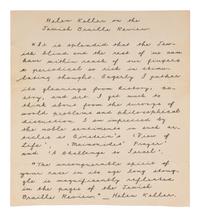 Helen Keller on the
Jewish Braille Review
"It is splendid that the Jew-
ish blind and the rest of us can
have within reach of our fingers
a periodical so rich in stimu-
lating thought. Eagerly I gather
its gleanings from history, so-
ciety, and art. I get much to
think about from the surveys of
world problems and philosophical
discussion. I am impressed by
the noble sentiments in such ar-
ticles as Einstein's 'View of
Life', 'Maimonides' Prayer'
and 'A Challenge to Israel'.
"The unconquerable spirit of
your race in its age long strug-
gle is magnificently reflected
in the pages of the Jewish
Braille Review." _ Helen Keller.